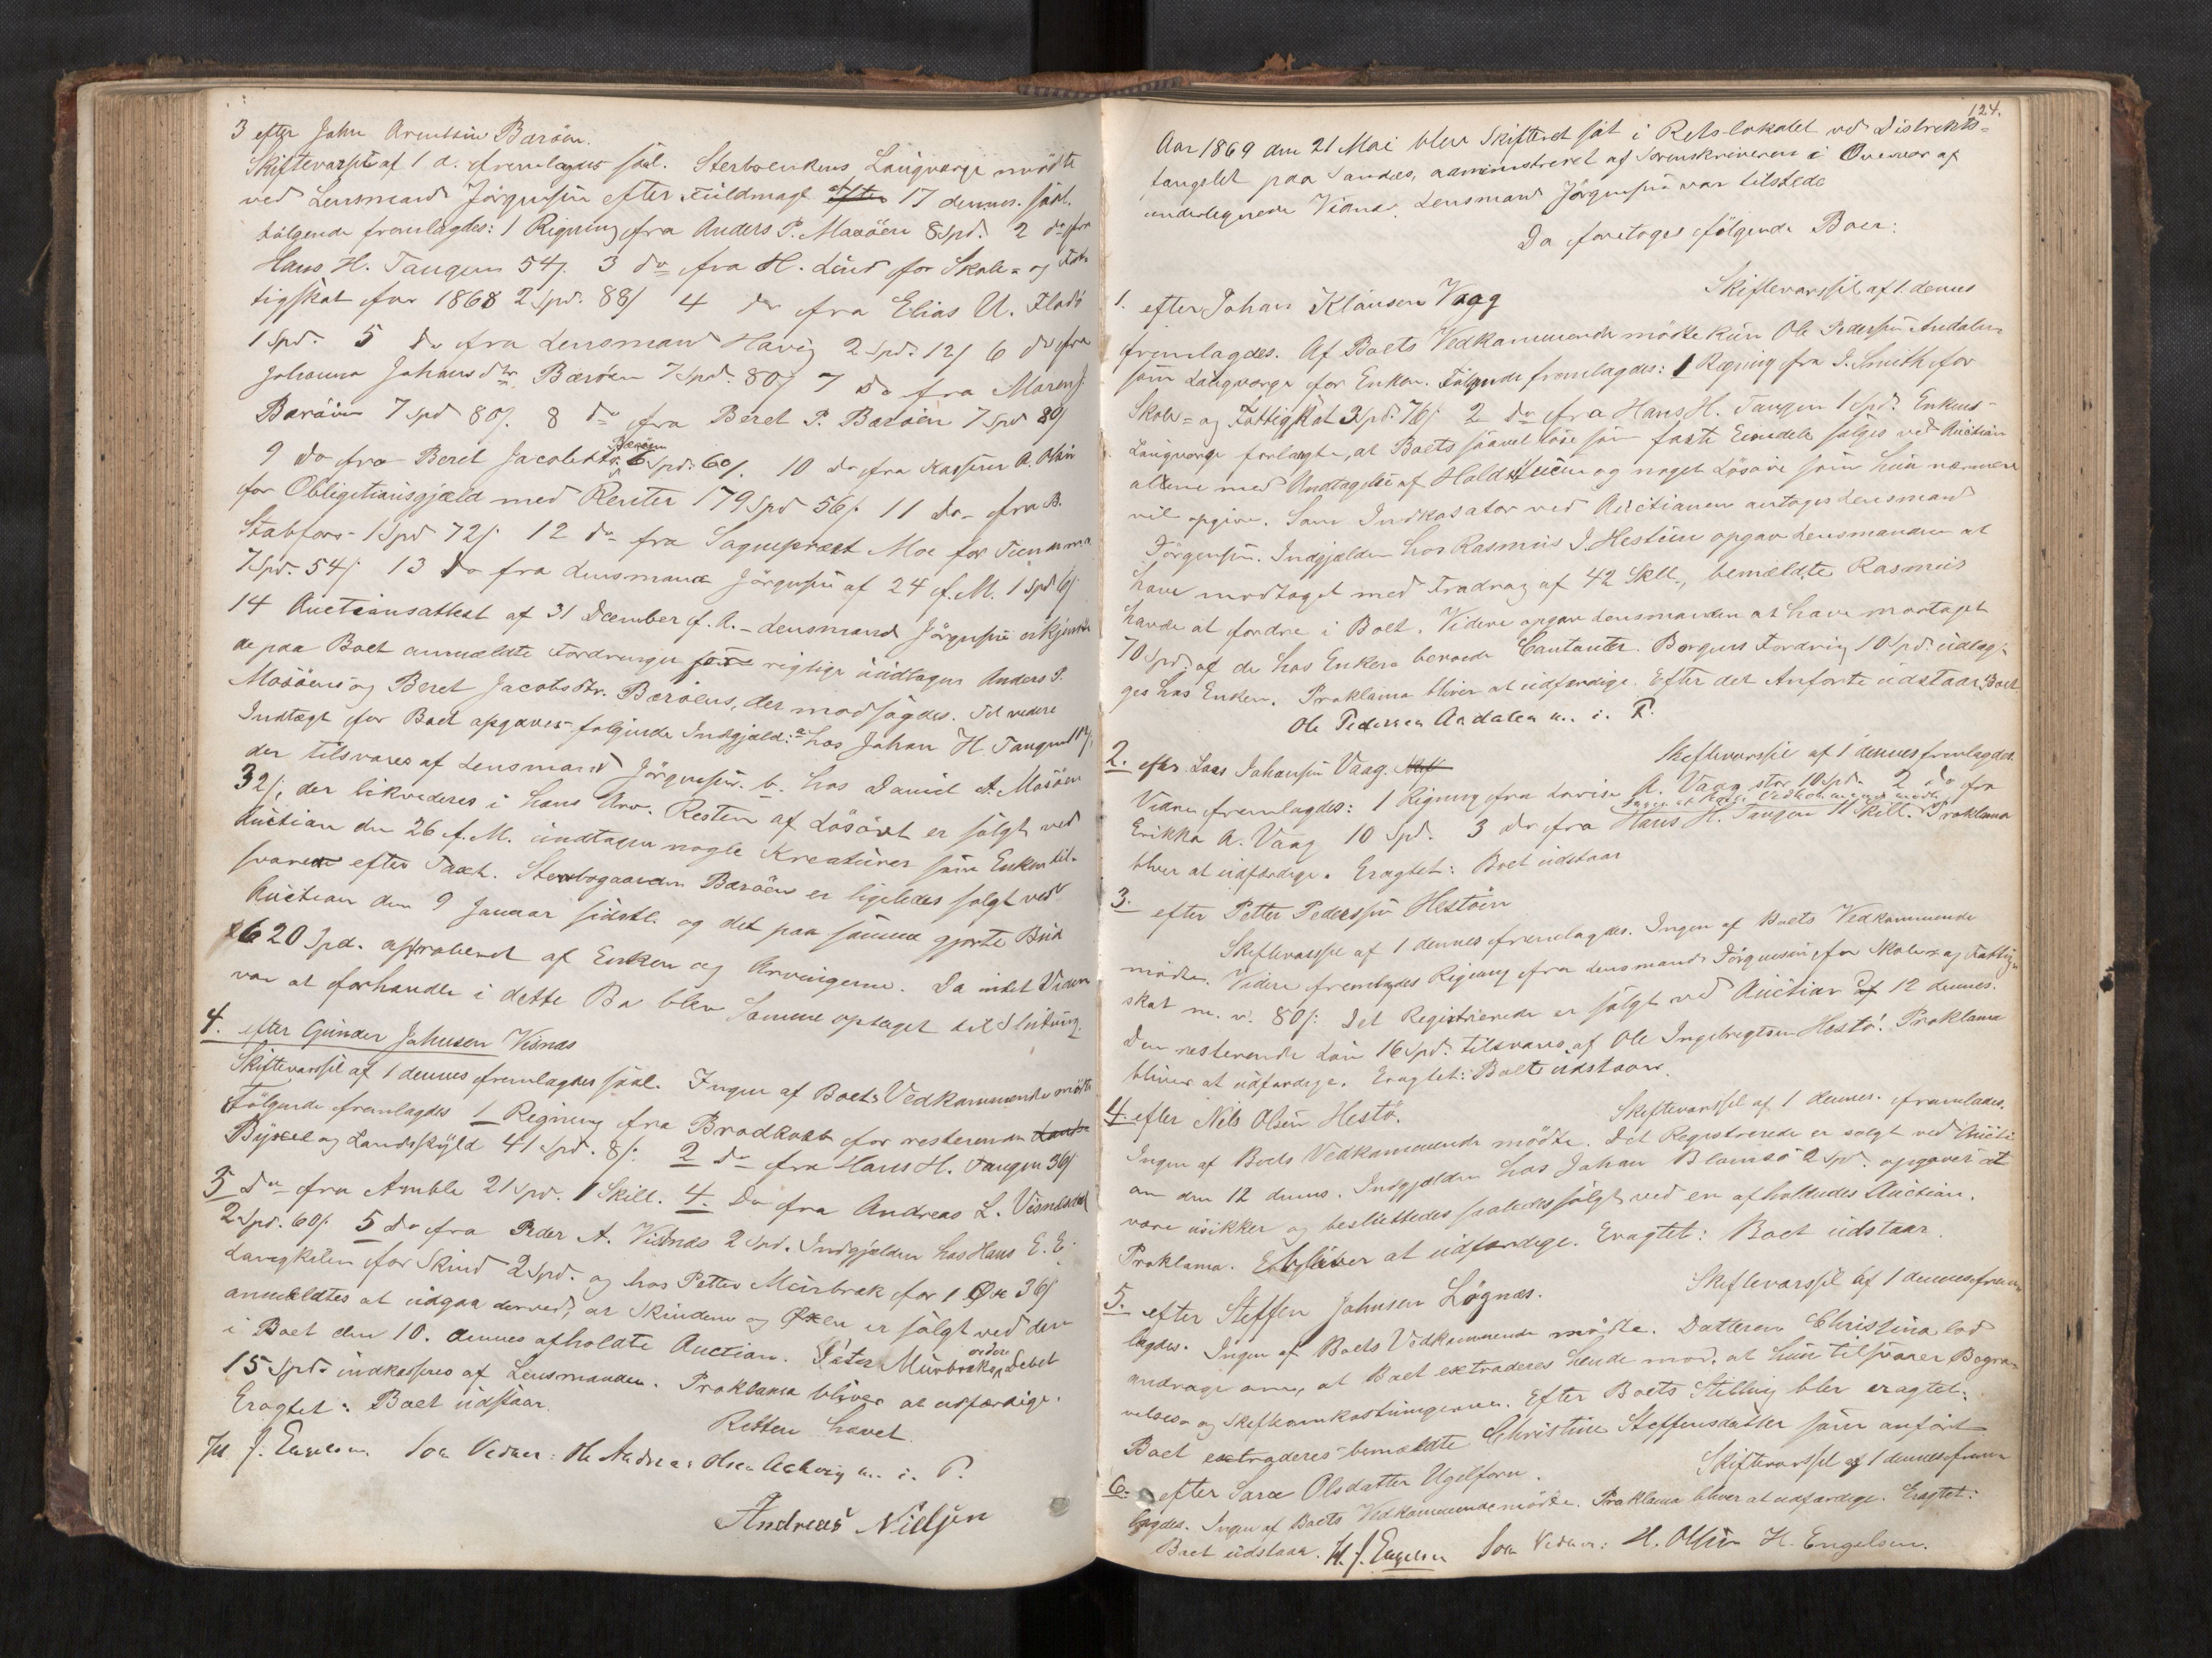 3 efter John Arentsen Barøen.
Skiftevarsel af 1 d. fremlagdes saal. Sterboenkens Laugværge mødte
ved Lensmand Jørgensen efter Fuldmagt af 17 dennes.
Følgende fremlagdes: 1 Regning fra Anders P. Masøen 8 Spd. 2 do fra
Hans H. Tangen 54 s. 3 do fra H. Lund for Skole- og Fat-
tigskat for 1868 2 Spd. 88 s 4 do fra Elias U. Fladø
1 Spd. 5 do fra Lensmand Havig 2 Spd. 12 s 6 do fra
Johanna Johansdtr Barøen 7 Spd. 80 s 7 do fra Maren J.
Barøen 7 Spd 80 s. 8 do fra Beret P. Barøen 7 Spd 80 s
9 do fra Beret Jacobsdtr. Barøen 6 Spd. 60 s. 10 do fra Kasserer A. Olsen
for Obligationsgjæld med Renter 179 Spd 56 s. 11 do fra B.
Stabfors 1 Spd 72 s. 12 do fra Sogneprest Moe for Tiende m.m.
7 Spd. 54 s. 13 do fra Lensmand Jørgensen af 24 f. M. 1 Spd 6 s
14 Auctionsattest af 31 December f. A. - Lensmand Jørgensen erkjendte
de paa Boet anmeldte Fordringer rigtige undtagen Anders P.
Masøens og Beret Jacobsdtr. Barøens, der modsagdes. Til videre
Indtægt for Boet opgaves følgende Indgjæld: a hos Johan H. Tangen
der tilsvares af Lensmand Jørgensen. b. hos Daniel A. Masøen
32 s, der likvideres i hans Arv. Resten af Løsøret er solgt ved
Auction den 26 f. M. undtagen nogle Kreaturer som Enken til-
svarer efter Taxt. Sterbogaarden Barøen er ligeledes solgt ved
Auction den 9 Januar sidstl. og det paa samme gjorte Bud
620 Spd. approberet af Enken og Arvingerne. Da intet Videre
var at forhandle i dette Bo blev Samme optaget til Slutning.
4. efter Gunder Johnsen Visnæs
Skiftevarsel af 1 dennes fremlagdes saal. Ingen af Boets Vedkommende mødte
Følgende fremlagdes 1 Regning fra Brodkorb for resterende
Byxel og Landskyld 41 Spd. 8 s. 2 do fra Hans H. Tangen 36 s
3 do fra Amble 21 Spd. 1 Skill. 4. Do fra Andreas L.
2 Spd. 60 s. 5 do fra Peder A. Visnæs 2 Spd. Indgjælden hos Hans E. E.
for Skind 2 Spd. og hos Petter Murbræk for 1 Oxe 36 s
anmeldtes at udgaa derved, at Skindene og Oxen er solgt ved den
i Boet den 10. dennes afholdte Auction. Peter Murbræks Debet
15 Spd. indkasseres af Lensmanden. Proklama bliver at udfærdige.
Eragtet: Boet udstaar.
Retten hævet.
H. J. Engelsen Som Vidner: Ole Andreas Olsen Aakvig m. i. P.
Andreas Nielsen
124.
Aar 1869 den 21 Mai blev Skifteret sat i Retslokalet ved Distrikts-
fængslet paa Sandnes, administreret af Sorenskriveren i Overvær af
undertegnede Vidner. Lensmand Jørgensen var tilstede
Da foretoges følgende Boer:
1. efter Johan Klausen Vaag Skiftevarsel af 1. dennes
fremlagdes. Af Boets Vedkommende mødte kun Ole Pedersen Andalen
som Laugværge for Enken. Følgende fremlagdes: 1 Regning fra J. Smith for
Skole- og Fattigskat 3 Spd. 76 s. 2 do fra Hans H. Tangen 1 Spd. Enkens
Laugværge forlangte, at Boets saavel løse som faste Eiendele sælges ved Auction
allene med Undtagelse af og noget Løsøre som hun nærmere
vil opgive. Som Indkasator ved Auctionen antoges Lensmand
Jørgensen. Indgjælden hos Rasmus J. Hestuen opgav Lensmanden at
have modtaget med Fradrag af 42 Skill., bemeldte Rasmus
havde at fordre i Boet. Videre opgav Lensmanden at have modtaget
70 Spd. af de hos Enken beroende Contanter. Borgens Fordring 10 Spd. udlæg-
ges hos Enken. Proklama bliver at udfærdige. Efter det Anførte udstaar Boet
Ole Pedersen Aadalen m. i. P.
2. efter Lars Johansen Vaag. Skiftevarsel af 1 dennes fremlagdes.
Ingen af Boets Vedkommende mødte
Videre fremlagdes: 1 Regning fra Lovise A. Vaag stor 10 Spd. 2 do fra
Erikka A. Vaag 10 Spd. 3 do fra Hans H. Tangen 11 Skill. Proklama
bliver at udfærdige. Eragtet: Boet udstaar
3. efter Petter Pedersen Hestøen
Skiftevarsel af 1 dennes fremlagdes. Ingen af Boets Vedkommende
mødte. Videre fremlagdes Regning fra Lensmand Jørgensen for Skole- og Fattig-
skat m. v. 80 s. Det Registrerede er solgt ved Auction af 12 dennes.
Den resterende Løn 16 Spd. tilsvares af Ole Ingebrigtsen Hestø. Proklama
bliver at udfærdige. Eragtet: Boet udstaar.
4. efter Nils Olsen Hestø. Skiftevarsel af 1 dennes. fremlades.
Ingen af Boets Vedkommende mødte. Det Registrerede er solgt ved Aucti-
on den 12 dennes. Indgjælden hos Johan Blomsø 2 Spd. opgaves at
være usikker og besluttedes saaledes solgt ved en afholdendes Auction.
Proklama bliver at udfærdige. Eragtet: Boet udstaar.
5. efter Steffen Johnsen Løgnæs. Skiftevarsel af 1 dennes frem-
lagdes. Ingen af Boets Vedkommende mødte. Datteren Christina lod
andrage om, at Boet extraderes hende mod, at hun tilsvarer Begra-
velses- og Skifteomkostningerne. Efter Boets Stilling blev eragtet:
Boet extraderes bemeldte Christine Steffensdatter som anført
6. efter Sara Olsdatter Ugelforn. Skiftevarsel af 1 dennes frem-
lagdes. Ingen af Boets Vedkommende mødte. Proklama bliver at udfærdige. Eragtet:
Boet udstaar. H. J. Engelsen Som Vidner: H. Olsen H. Engelsen.